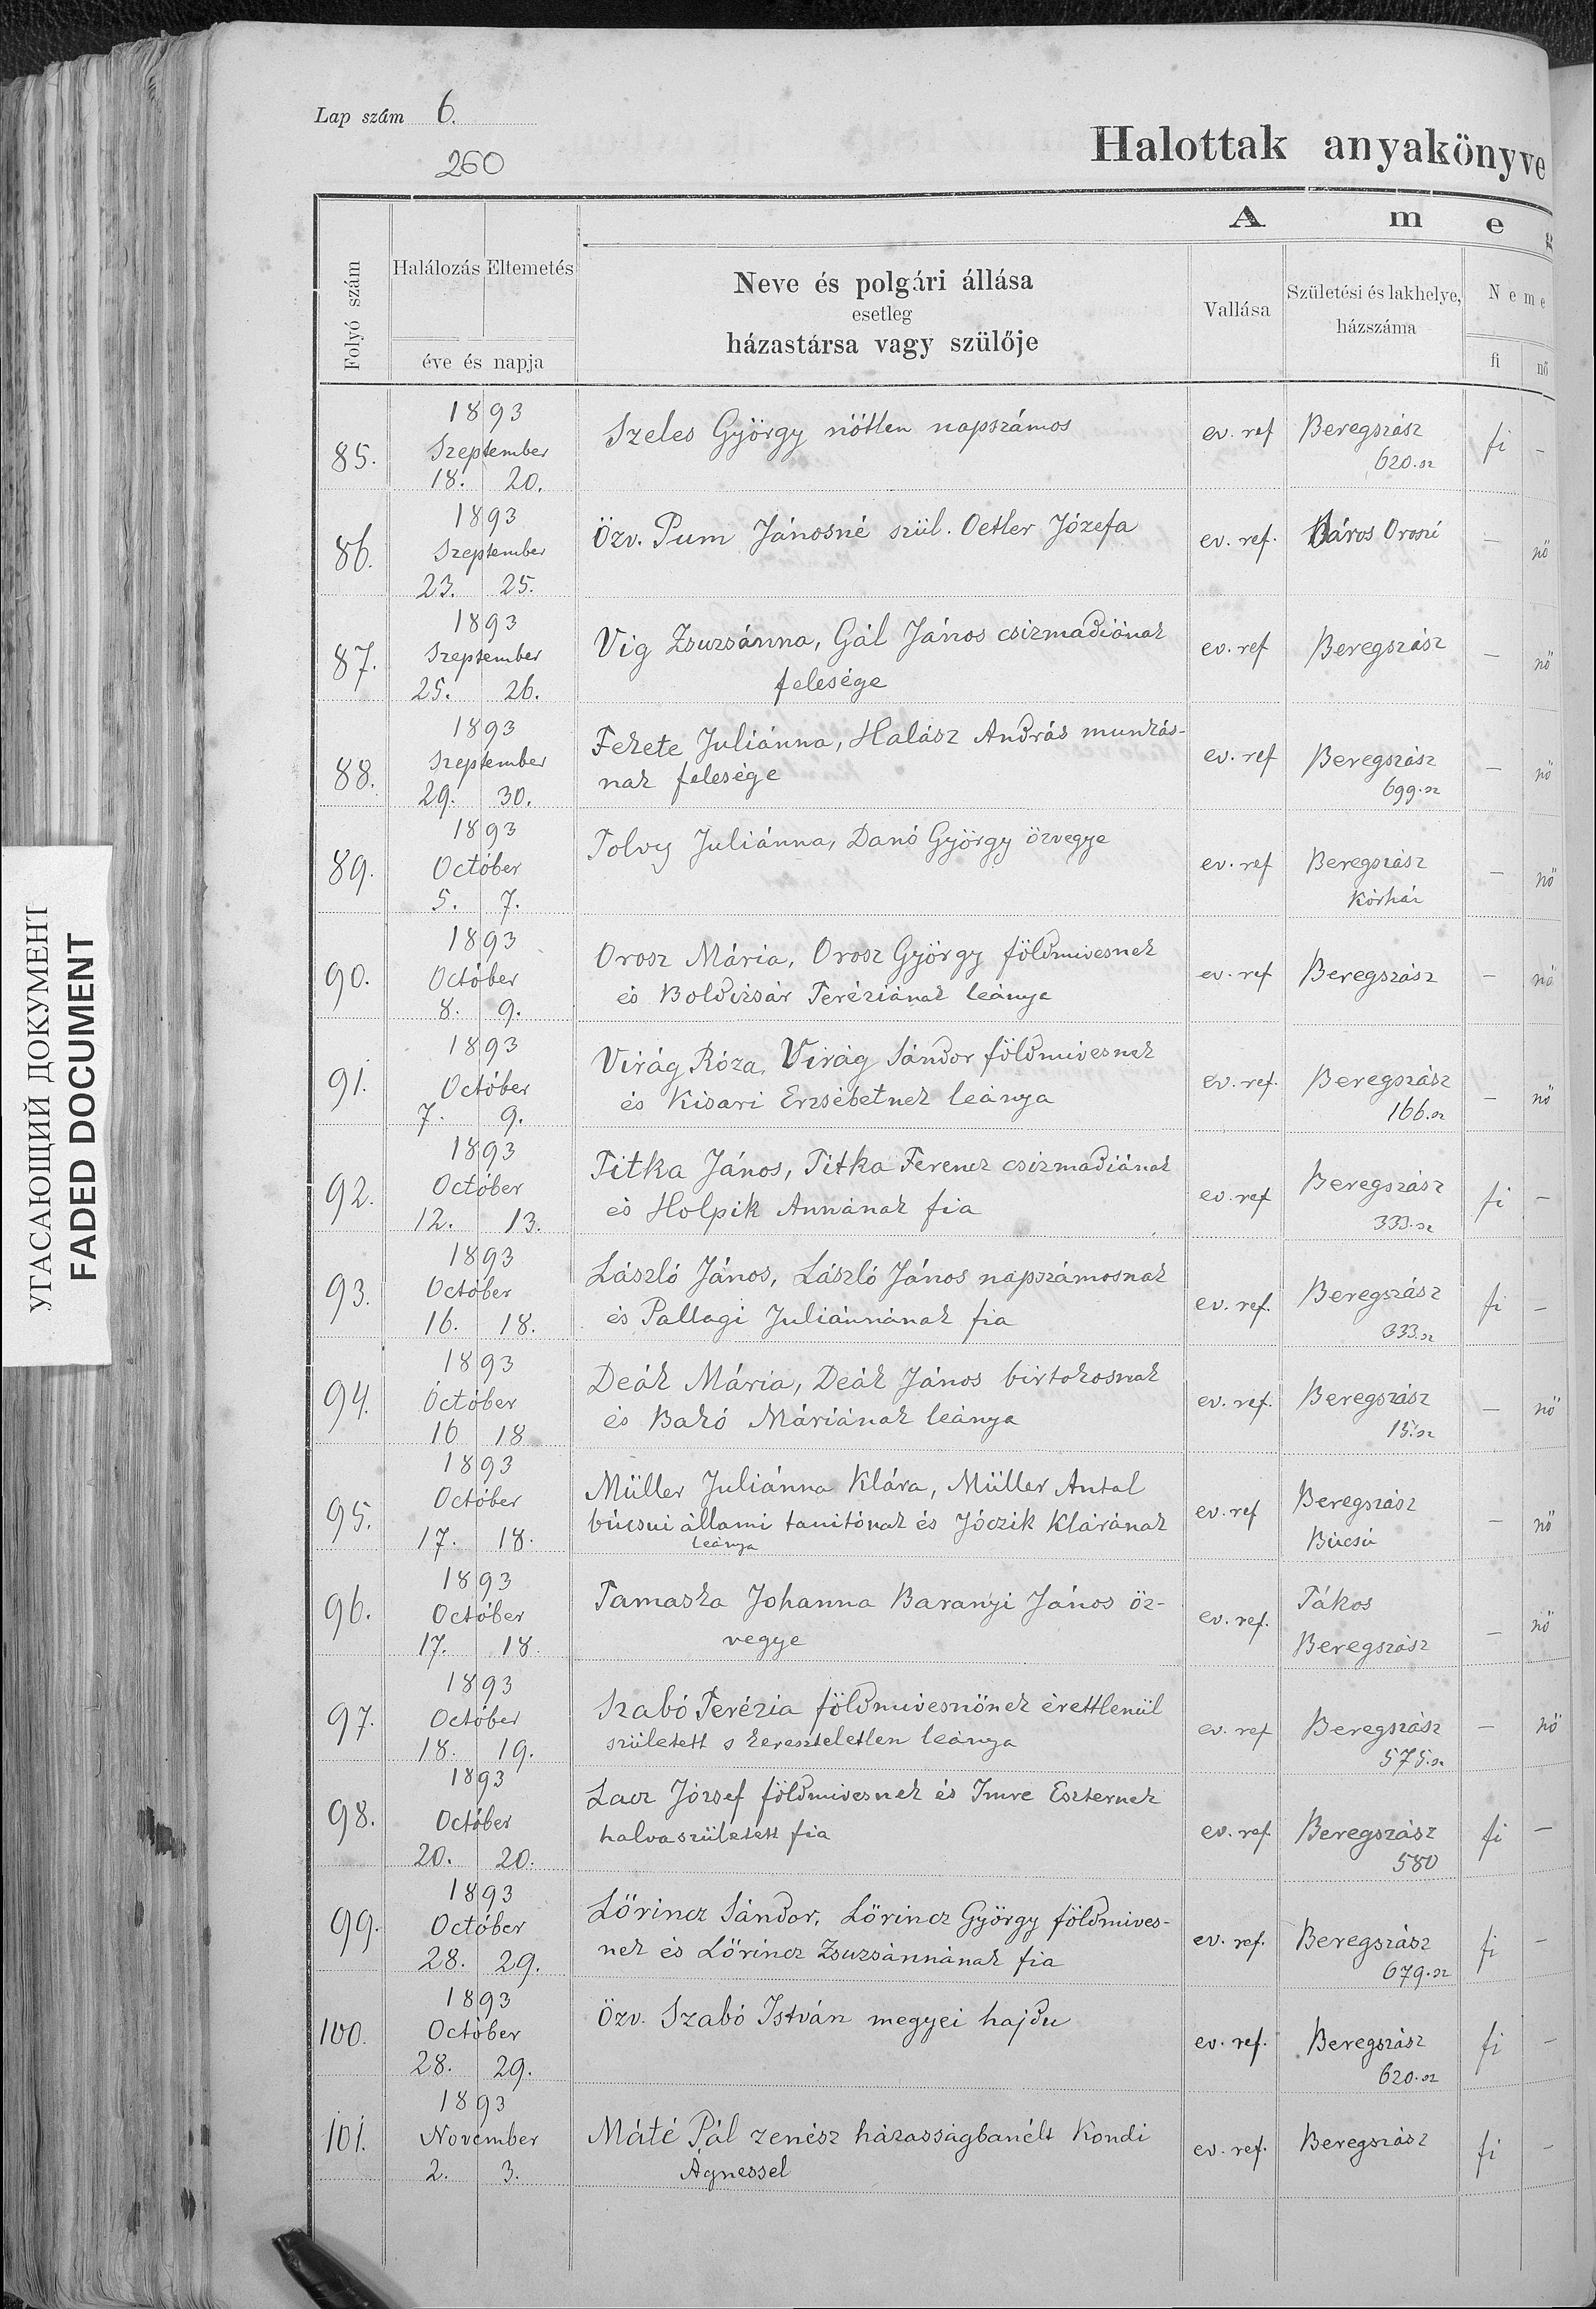 Lap szám 6.
260
Halottak anyakönyve
A m e g
Folyó szám
Halálozás Eltemetés
éve és napja
Neve és polgári állása
esetleg
házastársa vagy szülője
Vallása
Születési és lakhelye,
házszáma
Neme
fi nő
85. 1893 Szeptember 18. 20.
Szeles György nőtlen napszámos
ev. ref Beregszász fi –
620. sz
86. 1893 Szeptember 23. 25.
Özv. Pum Jánosné szül. Oetler Józefa
ev. ref. Város Oroszi – nő
87. 1893 Szeptember 25. 26.
Vig Zsuzsánna, Gál János csizmadiának
felesége
ev. ref Beregszász – nő
88. 1893 Szeptember 29. 30.
Fekete Juliánna, Halász András munkás-
nak felesége
ev. ref Beregszász – nő
699. sz
89. 1893 Október 5. 7.
Tolvy Juliánna, Danó György özvegye
ev. ref Beregszász – nő
Kórház
90. 1893 Október 8. 9.
Orosz Mária, Orosz György földmivesnek
és Boldizsár Teréziának leánya
ev. ref Beregszász – nő
91. 1893 Október 7. 9.
Virág Róza, Virág Sándor földmivesnek
és Kisari Erzsébetnek leánya
ev. ref. Beregszász – nő
166. sz
92. 1893 Október 12. 13.
Titka János, Titka Ferencz csizmadiának
és Holpik Annának fia
ev. ref Beregszász fi –
333. sz
93. 1893 Október 16. 18.
László János, László János napszámosnak
és Pallagi Juliánnának fia
ev. ref. Beregszász fi –
333. sz
94. 1893 Október 16 18
Deák Mária, Deák János birtokosnak
és Bakó Máriának leánya
ev. ref. Beregszász – nő
15. sz
95. 1893 Október 17. 18.
Müller Juliánna Klára, Müller Antal
búcsui állami tanitónak és Jóczik Klárának
leánya
ev. ref Beregszász – nő
Búcsú
96. 1893 Október 17. 18.
Tamaska Johanna Baranyi János öz-
vegye
ev. ref. Tákos – nő
Beregszász
97. 1893 Október 18. 19.
Szabó Terézia földmivesnőnek érettlenül
született s kereszteletlen leánya
ev. ref Beregszász – nő
575. sz
98. 1893 Október 20. 20.
Lacz József földmivesnek és Imre Eszternek
halvaszületett fia
ev. ref. Beregszász fi –
580
99. 1893 Október 28. 29.
Lőrincz Sándor, Lőrincz György földmives-
nek és Lőrincz Zsuzsánnának fia
ev. ref. Beregszász fi –
679. sz
100. 1893 Október 28. 29.
Özv. Szabó István megyei hajdu
ev. ref. Beregszász fi –
620. sz
101. 1893 November 2. 3.
Máté Pál zenész házasságbanélt Kondi
Agnessel
ev. ref. Beregszász fi –
УГАСАЮЩИЙ ДОКУМЕНТ
FADED DOCUMENT